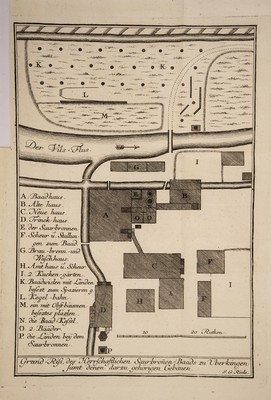 K
K
L
M
Der Vils-Flus.
G
I
A Baadhaus.
B. Alte haus
C. Neue haus.
D. Trinck-haus.
E. der Saurbronnen.
F. Scheur u. Stallun=
gen zum Baad
G. Brau-brenn-und
Wäschhaus.
H. Amthaus u. Scheur.
I. 2 Kuchen-gärten.
K. Baadwisen mit Linden
besezt zum Spaziern g.
L. Kegel-bahn.
M. ein mit Obstbäumen
beseztes plazlen.
N. die Baad-Kesel.
O. 2 Baader.
P. die Linden bey dem
Saurbronnen.
N
B
A
O
O
C
F
H
F
I
D
E
P
10
20 Ruthen.
Grund Riß, des Herrschafftlichen Saurbronen-Baads zu Uberkingen,
samt denen darzu gehörigen Gebäuen